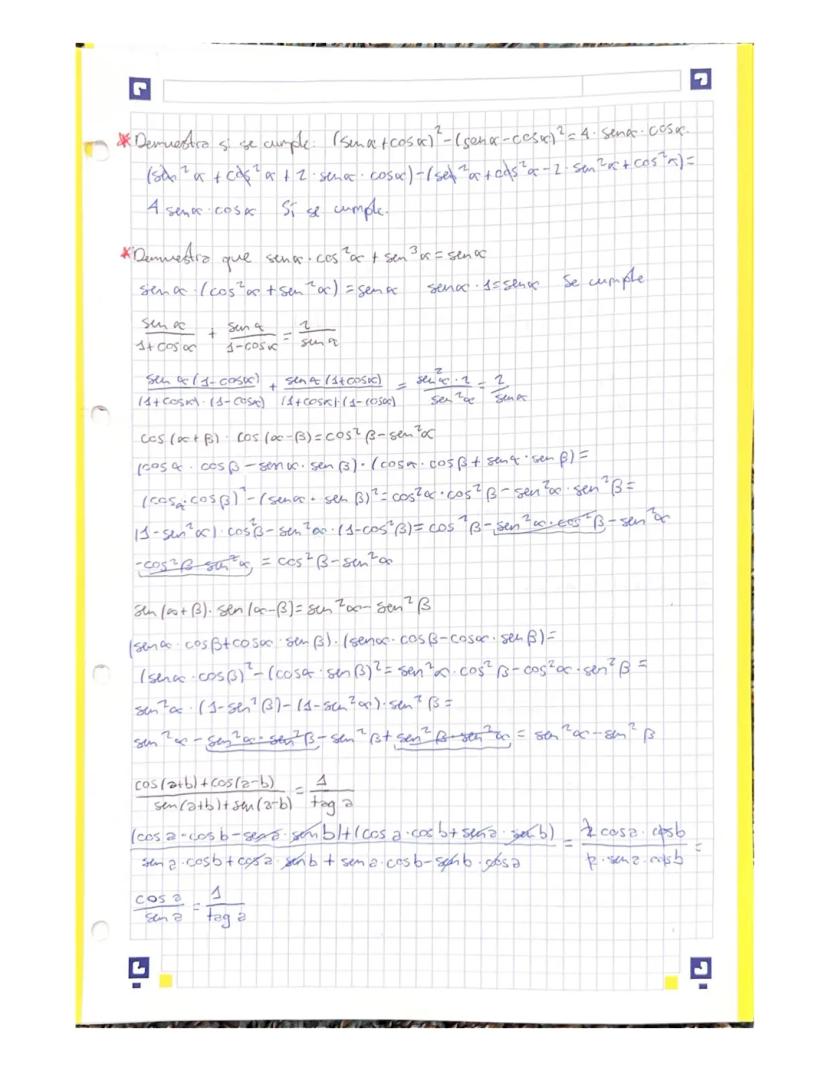 * Demuestra si se cumple: (senα+cosα)²-(senα-cosα)²=4·senα·cosα.
(sen²α+cos²α+2·senα·cosα)-(sen²α+cos²α-2·sen²α+cos²α)=
4 senα·cosα Sí se cumple.
* Demuestra que senα·cos²α+sen³α=senα
senα·(cos²α+sen²α)=senα senα·1=senα Se cumple
senα/(1+cosα) + senα/(1-cosα) = 2/senα
senα(1-cosα)/((1+cosα)·(1-cosα)) + senα(1+cosα)/((1+cosα)·(1-cosα)) = sen²α·2/sen²α = 2/senα
cos(α+β)·cos(α-β)=cos²β-sen²α
(cosα·cosβ-senα·senβ)·(cosα·cosβ+senα·senβ)=
(cosα·cosβ)²-(senα·senβ)²=cos²α·cos²β-sen²α·sen²β=
(1-sen²α)·cos²β-sen²α·(1-cos²β)=cos²β-sen²α·cos²β-sen²α
-cos²β·sen²α = cos²β-sen²α
sen(α+β)·sen(α-β)=sen²α-sen²β
(senα·cosβ+cosα·senβ)·(senα·cosβ-cosα·senβ)=
(senα·cosβ)²-(cosα·senβ)²=sen²α·cos²β-cos²α·sen²β=
sen²α·(1-sen²β)-(1-sen²α)·sen²β=
sen²α-sen²α·sen²β-sen²β+sen²β·sen²α = sen²α-sen²β
(cos(a+b)+cos(a-b))/(sen(a+b)+sen(a-b)) = 1/tag a
((cosa·cosb-sena·senb)+(cosa·cosb+sena·senb))/(sena·cosb+cosa·senb+sena·cosb-senb·cosa) = 2cosa·cosb/2·sena·cosb =
cosa/sena = 1/tag a